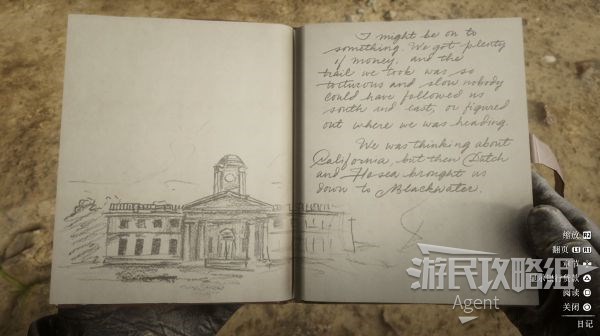 I might be on to
something. We got plenty
of money, and the
trail we took was so
torturous and slow nobody
could have followed us
south and east, or figured
out where we was heading.
We was thinking about
California, but then Dutch
and Hosea brought us
down to Blackwater.
游民攻略组
Agent
缩放 R2
翻页 L1 R1
阅读
关闭
日记